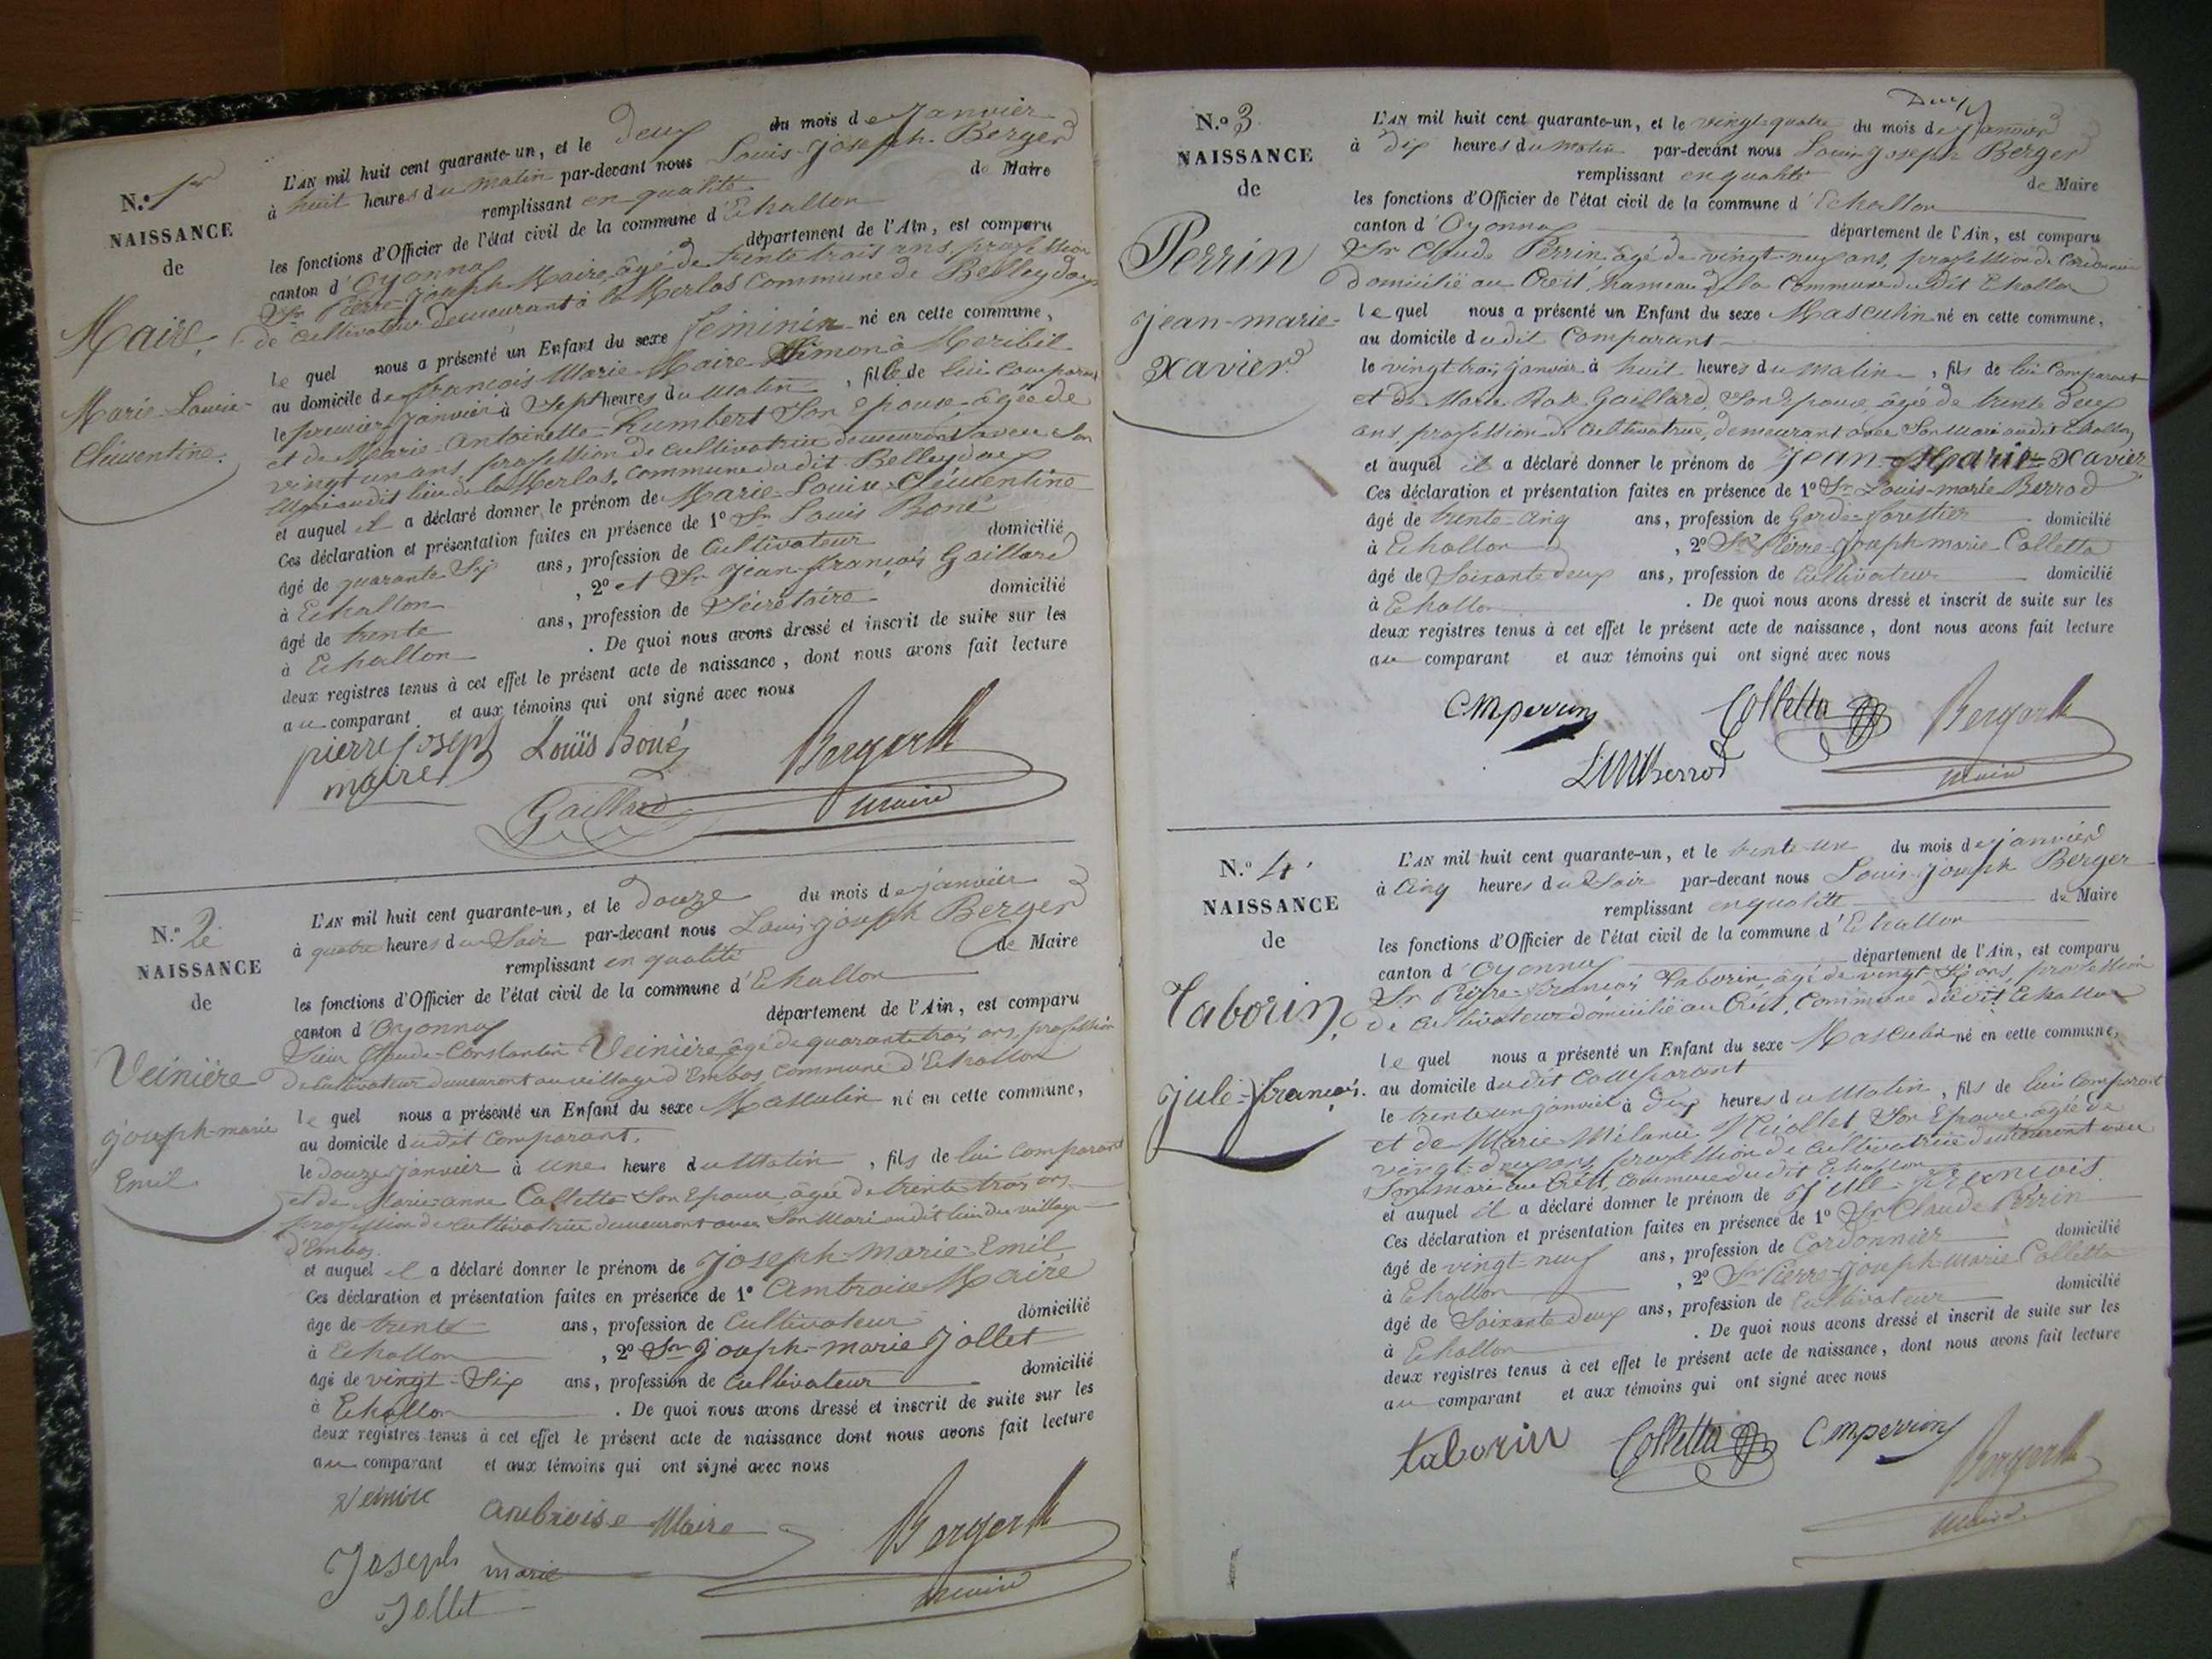 N.º 1er
NAISSANCE
de
Maire,
Marie-Louise-
Clémentine.
L'AN mil huit cent quarante-un, et le deux du mois de Janvier
à huit heures du matin par-devant nous Louis-Joseph Berger
remplissant en qualité de Maire
les fonctions d'Officier de l'état civil de la commune d'Echallon
canton d'Oyonnax département de l'Ain, est comparu
Sr Pierre-Joseph Maire, âgé de trente trois ans, profession
de cultivateur demeurant à la Merlos Commune de Belleydoux
le quel nous a présenté un Enfant du sexe féminin né en cette commune,
au domicile de françois Marie Maire
le premier Janvier à Sept heures du Matin, fille de lui comparant
et de Marie-Antoinette Humbert Son Epouse âgée de
vingt un ans, profession de cultivatrice demeurant avec son
Mari audit lieu de la Merlos, Commune du dit Belleydoux
et auquel il a déclaré donner le prénom de Marie-Louise-Clémentine
Ces déclaration et présentation faites en présence de 1º Sr Louis Boné
âgé de quarante Six ans, profession de Cultivateur domicilié
à Echallon, 2º et Sr Jean-françois Gaillard
âgé de trente ans, profession de Sécrétaire domicilié
à Echallon. De quoi nous avons dressé et inscrit de suite sur les
deux registres tenus à cet effet le présent acte de naissance, dont nous avons fait lecture
au comparant et aux témoins qui ont signé avec nous
pierre joseph Louïs Boné Berger
maire Gaillard maire
N.º 2e
NAISSANCE
de
Veinière
Joseph-marie
Emil
L'AN mil huit cent quarante-un, et le Douze du mois de janvier
à quatre heures du Soir par-devant nous Louis-joseph Berger
remplissant en qualité de Maire
les fonctions d'Officier de l'état civil de la commune d'Echallon
canton d'Oyonnax département de l'Ain, est comparu
Sieur Claude-Constantin Veinière, âgé de quarante trois ans, profession
de Cultivateur demeurant au village d'Embos Commune d'Echallon
le quel nous a présenté un Enfant du sexe Masculin né en cette commune,
au domicile dudit Comparant.
le douze janvier à une heure du Matin, fils de lui Comparant
et de Marie-anne Colletta Son Epouse âgée de trente trois ans,
profession de cultivatrice demeurant avec Son Mari audit lieu du village
d'Embos.
et auquel il a déclaré donner le prénom de Joseph-Marie-Emil
Ces déclaration et présentation faites en présence de 1º Ambroise Maire
âgé de trente ans, profession de Cultivateur domicilié
à Echallon, 2º Sr Joseph-marie Jollet
âgé de vingt-Six ans, profession de Cultivateur domicilié
à Echallon. De quoi nous avons dressé et inscrit de suite sur les
deux registres tenus à cet effet le présent acte de naissance dont nous avons fait lecture
au comparant et aux témoins qui ont signé avec nous
ambroise Maire Berger
Joseph marie maire
Jollet
N.º 3
NAISSANCE
de
Perrin
jean-marie-
Xavier
L'AN mil huit cent quarante-un, et le vingt-quatre du mois de Janvier
à dix heures du matin par-devant nous Louis-Joseph Berger
remplissant en qualité de Maire
les fonctions d'Officier de l'état civil de la commune d'Echallon
canton d'Oyonnax département de l'Ain, est comparu
Sr Claude Perrin âgé de vingt-neuf ans, profession de Cordonnier
domicilié au Crèst, hameau de la Commune du dit Echallon
le quel nous a présenté un Enfant du sexe Masculin né en cette commune,
au domicile dudit Comparant
le vingt trois janvier à huit heures du matin, fils de lui Comparant
et de Marie Rose Gaillard, Son Epouse, âgée de trente deux
ans, profession de Cultivatrice, demeurant avec Son Mari audit Echallon
et auquel il a déclaré donner le prénom de Jean-Marie-Xavier
Ces déclaration et présentation faites en présence de 1º Sr Louis-marie Berrod
âgé de trente-cinq ans, profession de Garde-forestier domicilié
à Echallon, 2º Sr Pierre-Joseph marie Colletta
âgé de Soixante deux ans, profession de Cultivateur domicilié
à Echallon. De quoi nous avons dressé et inscrit de suite sur les
deux registres tenus à cet effet le présent acte de naissance, dont nous avons fait lecture
au comparant et aux témoins qui ont signé avec nous
CMperrin Colletta Berger
LMBerrod maire
N.º 4
NAISSANCE
de
Taborin,
jule-françois.
L'AN mil huit cent quarante-un, et le trente-un du mois de janvier
à Cinq heures du Soir par-devant nous Louis-joseph Berger
remplissant en qualité de Maire
les fonctions d'Officier de l'état civil de la commune d'Echallon
canton d'Oyonnax département de l'Ain, est comparu
Sr Pierre-françois Taborin, âgé de vingt-Six ans, profession
de Cultivateur domicilié au Crèst, Commune dudit Echallon
le quel nous a présenté un Enfant du sexe Masculin né en cette commune,
au domicile dudit Comparant
le trente un janvier à dix heures du Matin, fils de lui Comparant
et de Marie-Mélanie Son Epouse âgée de
vingt-deux ans, profession de Cultivatrice demeurant avec
Son mari au Crèst, Commune du dit Echallon
et auquel il a déclaré donner le prénom de Jule-françois.
Ces déclaration et présentation faites en présence de 1º Sr Claude Perrin
âgé de vingt-neuf ans, profession de Cordonnier domicilié
à Echallon, 2º Sr Pierre-Joseph-Marie Colletta
âgé de Soixante deux ans, profession de Cultivateur domicilié
à Echallon. De quoi nous avons dressé et inscrit de suite sur les
deux registres tenus à cet effet le présent acte de naissance, dont nous avons fait lecture
au comparant et aux témoins qui ont signé avec nous
taborin Colletta CMperrin Berger
maire